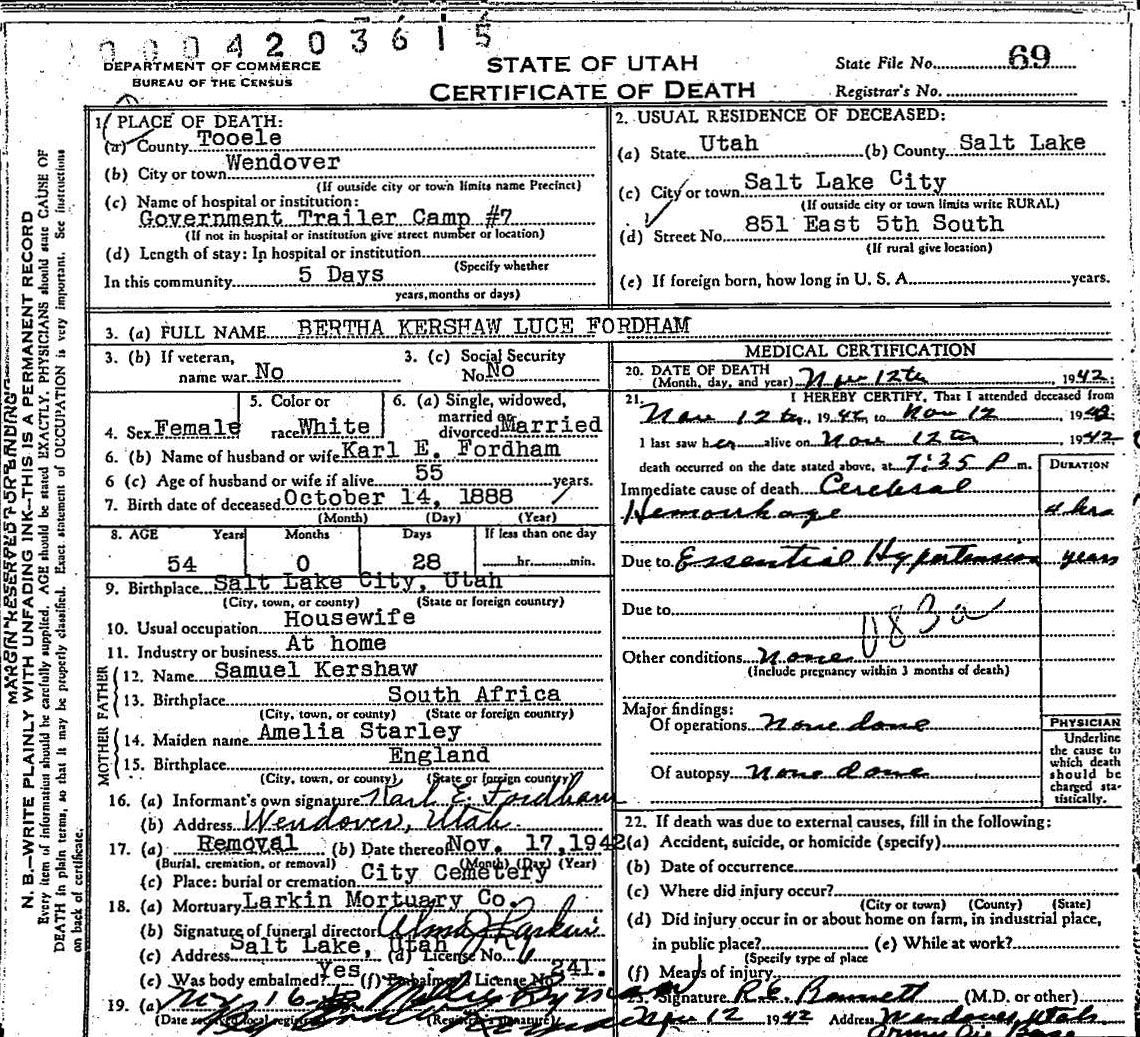 0004203615
DEPARTMENT OF COMMERCE
BUREAU OF THE CENSUS
STATE OF UTAH
CERTIFICATE OF DEATH
State File No. 69
Registrar's No.
MARGIN RESERVED FOR BINDING
N. B.—WRITE PLAINLY WITH UNFADING INK—THIS IS A PERMANENT RECORD
Every item of information should be carefully supplied. AGE should be stated EXACTLY. PHYSICIANS should state CAUSE OF
DEATH in plain terms, so that it may be properly classified. Exact statement of OCCUPATION is very important. See instructions
on back of certificate.
1. PLACE OF DEATH:
(a) County Tooele
(b) City or town Wendover
(If outside city or town limits name Precinct)
(c) Name of hospital or institution:
Government Trailer Camp #7
(If not in hospital or institution give street number or location)
(d) Length of stay: In hospital or institution
(Specify whether
In this community 5 Days
years, months or days)
2. USUAL RESIDENCE OF DECEASED:
(a) State Utah (b) County Salt Lake
(c) City or town Salt Lake City
(If outside city or town limits write RURAL)
(d) Street No. 851 East 5th South
(If rural give location)
(e) If foreign born, how long in U. S. A. years.
3. (a) FULL NAME BERTHA KERSHAW LUCE FORDHAM
3. (b) If veteran, name war No
3. (c) Social Security No. No
4. Sex Female
5. Color or race White
6. (a) Single, widowed, married or divorced Married
6. (b) Name of husband or wife Karl E. Fordham
6 (c) Age of husband or wife if alive 55 years.
7. Birth date of deceased October 14, 1888
(Month) (Day) (Year)
8. AGE Years Months Days If less than one day
54 0 28 hr. min.
9. Birthplace Salt Lake City, Utah
(City, town, or county) (State or foreign country)
10. Usual occupation Housewife
11. Industry or business At home
FATHER
12. Name Samuel Kershaw
13. Birthplace South Africa
(City, town, or county) (State or foreign country)
MOTHER
14. Maiden name Amelia Starley
15. Birthplace England
(City, town, or county) (State or foreign country)
16. (a) Informant's own signature Karl E. Fordham
(b) Address Wendover, Utah.
17. (a) Removal (b) Date thereof Nov. 17, 1942
(Burial, cremation, or removal) (Month) (Day) (Year)
(c) Place: burial or cremation City Cemetery
18. (a) Mortuary Larkin Mortuary Co.
(b) Signature of funeral director Alma J Larkin
(c) Address Salt Lake, Utah (d) License No.
(e) Was body embalmed? Yes (f) Embalmer's License No. 241.
19. (a)
(Date received local registrar) (Registrar's signature)
MEDICAL CERTIFICATION
20. DATE OF DEATH
(Month, day, and year) Nov 12th, 1942.
21. I HEREBY CERTIFY, That I attended deceased from
Nov 12th, 1942 to Nov 12 1942
I last saw her alive on Nov 12th, 1942
death occurred on the date stated above, at 7:35 P m. DURATION
Immediate cause of death Cerebral
Hemorrhage 4 hrs
Due to Essential Hypertension years
Due to
083a
Other conditions None
(Include pregnancy within 3 months of death)
Major findings:
Of operations None done
Of autopsy None done
PHYSICIAN
Underline
the cause to
which death
should be
charged sta-
tistically.
22. If death was due to external causes, fill in the following:
(a) Accident, suicide, or homicide (specify)
(b) Date of occurrence
(c) Where did injury occur?
(City or town) (County) (State)
(d) Did injury occur in or about home on farm, in industrial place,
in public place? (e) While at work?
(Specify type of place
(f) Means of injury
23. Signature (M.D. or other)
Nov 12 1942 Address Wendover, Utah
Army Air Base